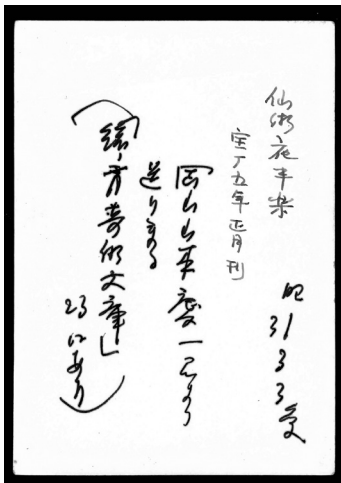 仙術夜半楽
宝丁五年正月刊
昭31 3 3 受
岡山山本慶一君より
送り来る
(「緒方奇術文庫」
23にあり)